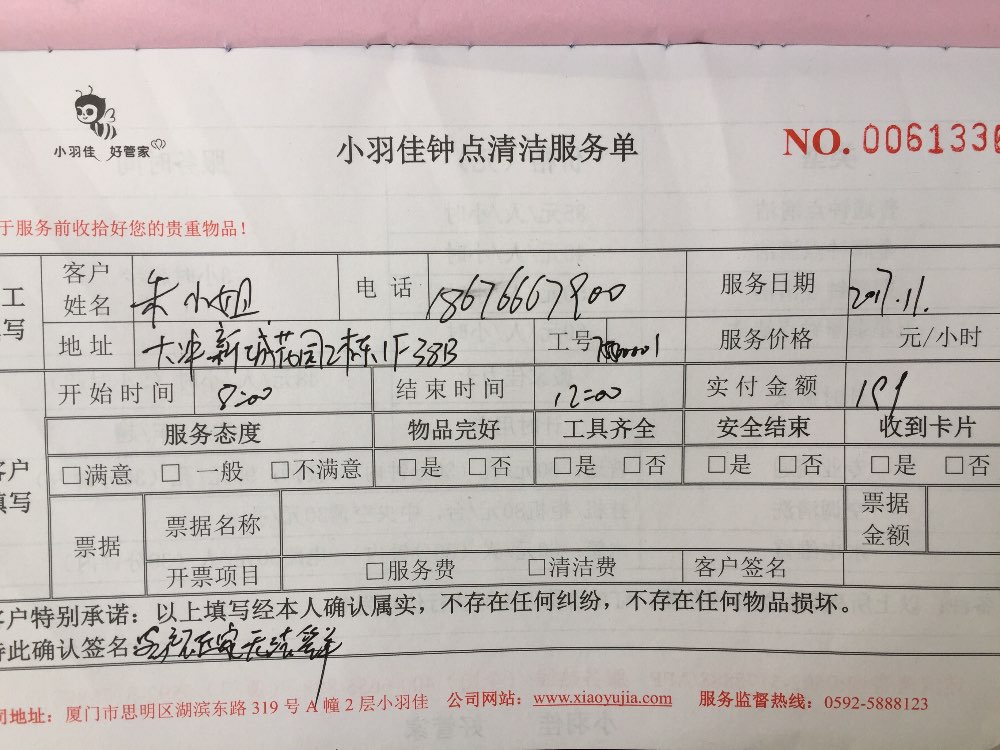 小羽佳 好管家
小羽佳钟点清洁服务单
NO. 0061330
于服务前收拾好您的贵重物品！
工
写
客户
姓名
朱小姐
电 话
18676667900
服务日期
2017.11.
地 址
大冲新城花园2栋1F38B
工号
服务价格
元/小时
开 始 时 间
8:00
结 束 时 间
12:00
实 付 金 额
199
客户
填写
服务态度
物品完好
工具齐全
安全结束
收到卡片
□满意 □ 一般 □不满意
□是 □否
□是 □否
□是 □否
□是 □否
票据
票据名称
票据
金额
开票项目
□服务费 □清洁费
客户签名
客户特别承诺：以上填写经本人确认属实，不存在任何纠纷，不存在任何物品损坏。
特此确认签名
司地址：厦门市思明区湖滨东路 319 号 A 幢 2 层小羽佳 公司网站：www.xiaoyujia.com 服务监督热线：0592-5888123